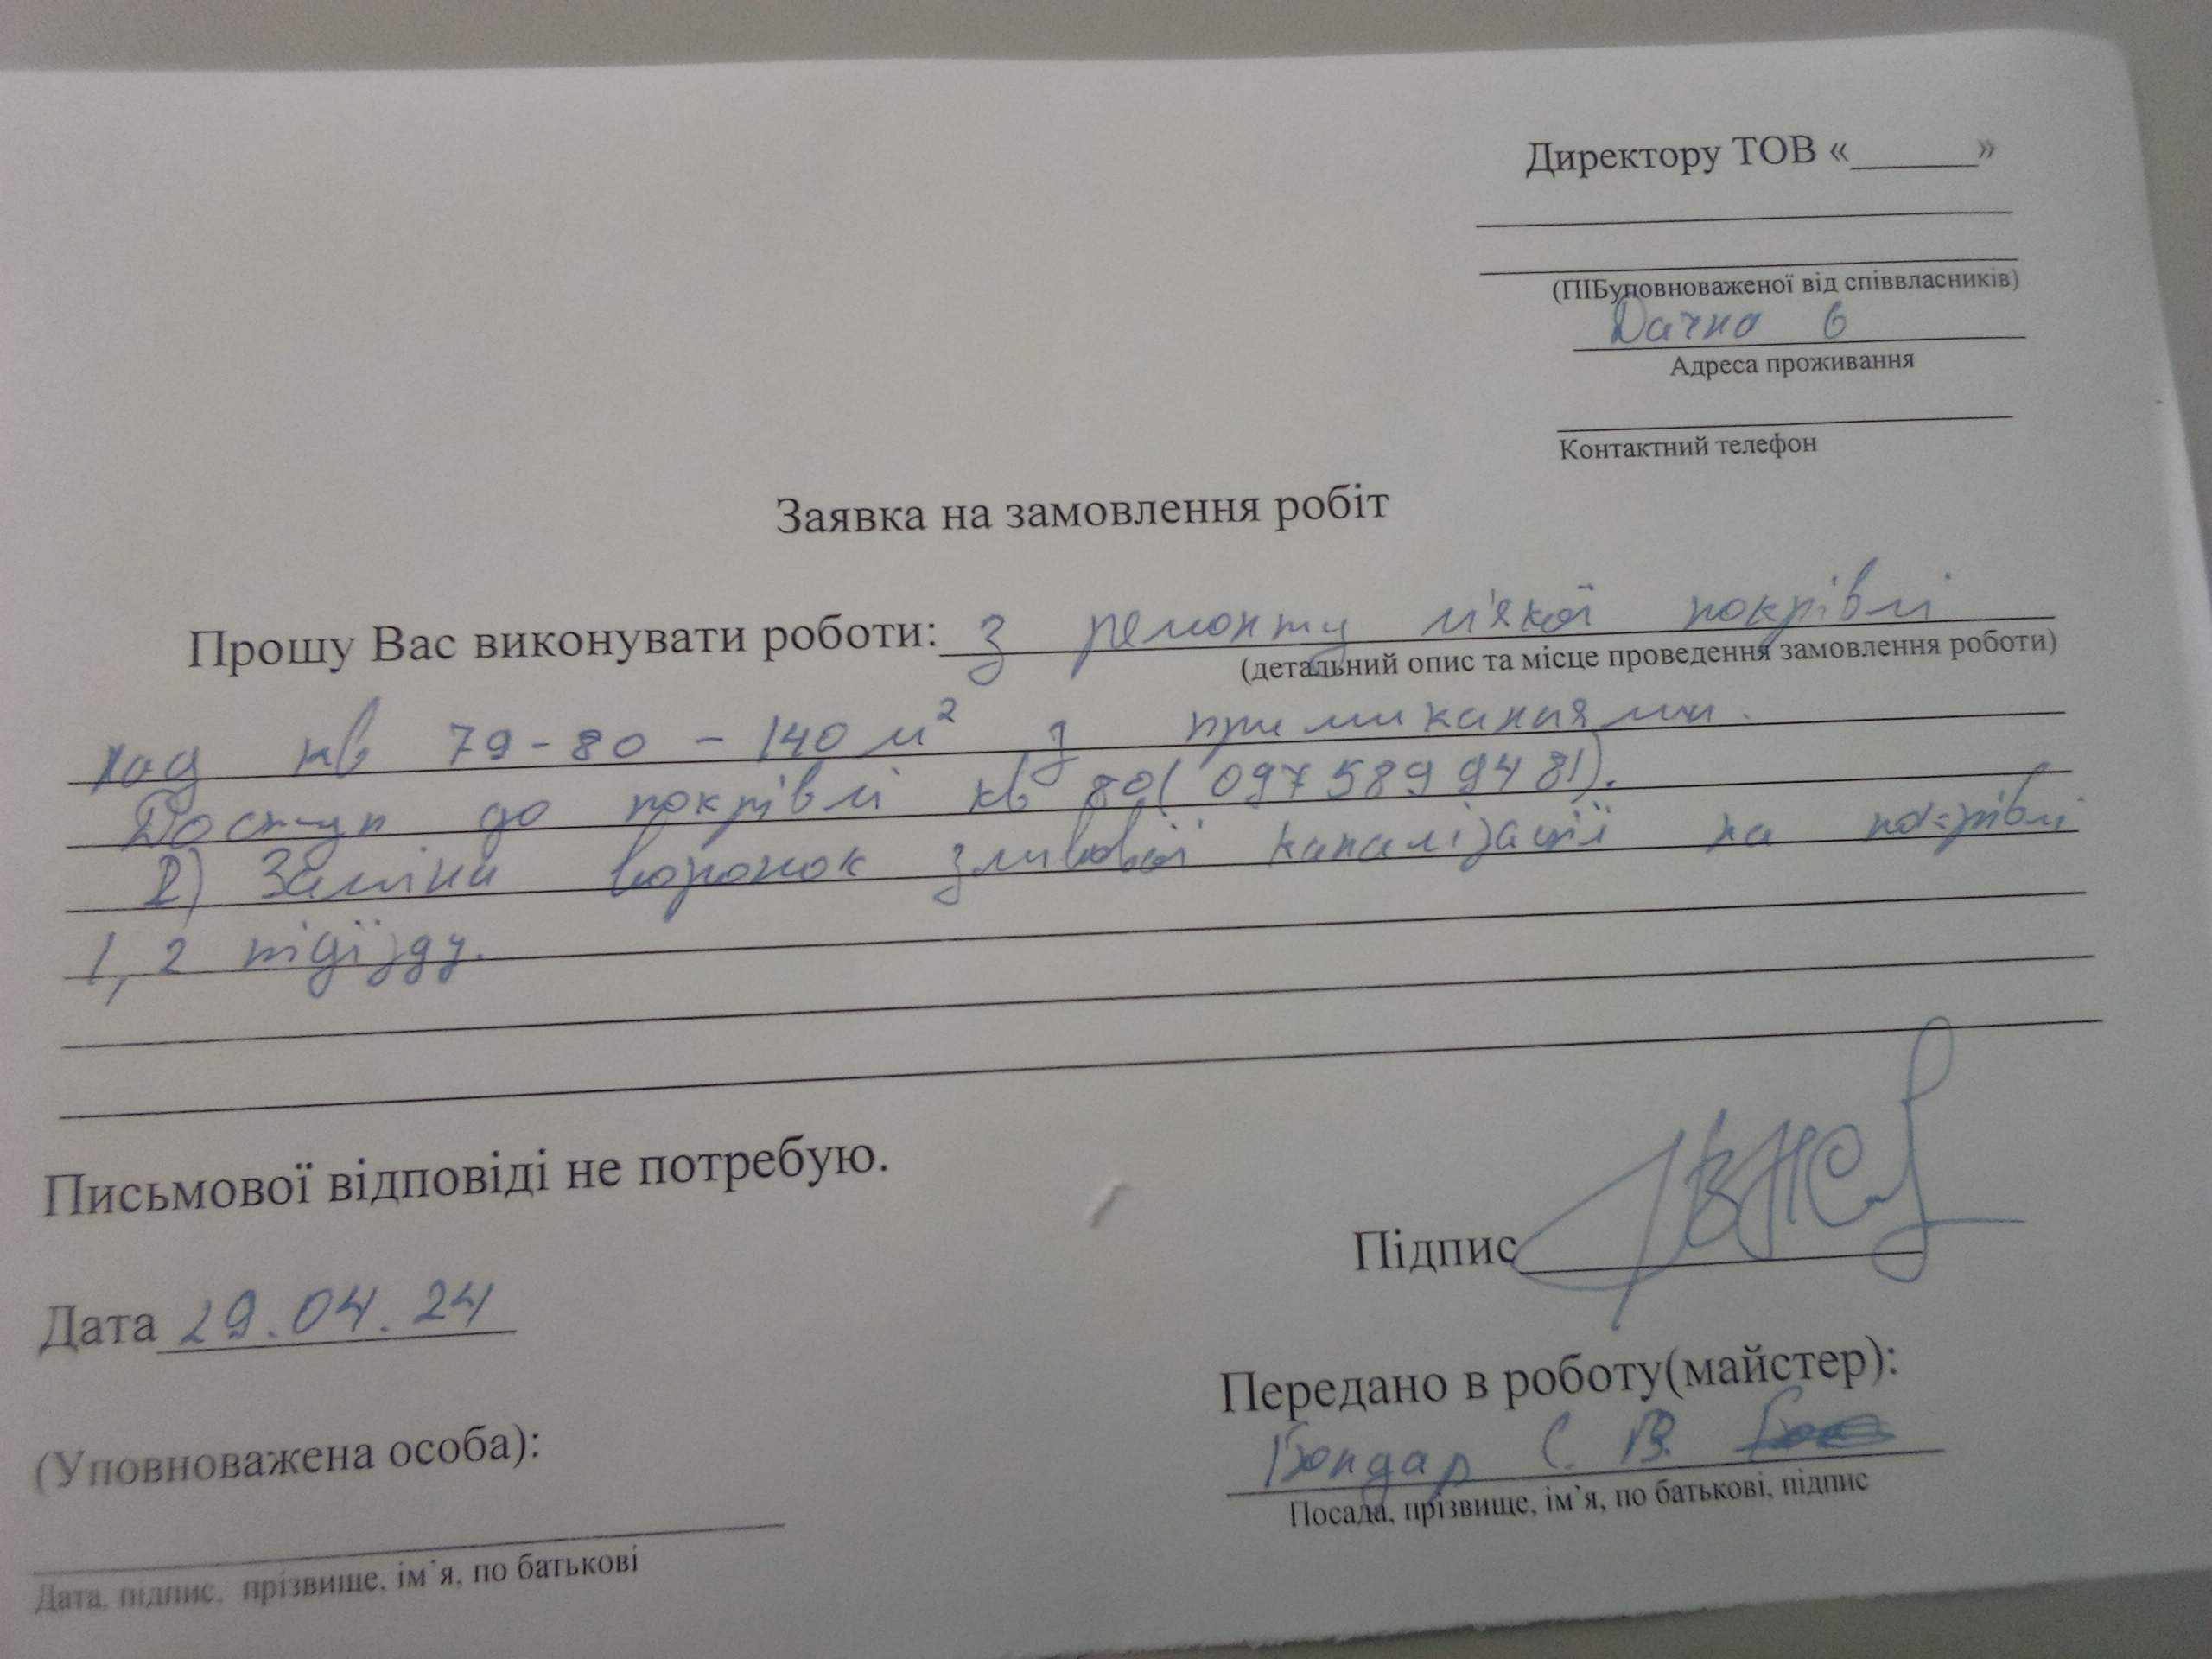 Директору ТОВ «______»
(ПІБуповноваженої від співвласників)
Дачна 6
Адреса проживання
Контактний телефон
Заявка на замовлення робіт
Прошу Вас виконувати роботи: з ремонту м'якої покрівлі
(детальний опис та місце проведення замовлення роботи)
над кв 79-80 - 140 м² з примиканнями.
Доступ до покрівлі кв 80( 097 589 94 81).
2) Заміна воронок зливової каналізації на покрівлі
1, 2 підїзду.
Письмової відповіді не потребую.
Підпис
Дата 29.04.24
Передано в роботу(майстер):
(Уповноважена особа):
Бондар С. В.
Посада, прізвище, ім’я, по батькові, підпис
Дата, підпис, прізвище, ім’я, по батькові